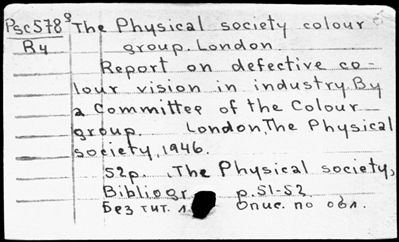 Psc578⁸ The Physical society colour
Ry group. London.
Report on defective co-
lour vision in industry. By
a Committee of the Colour
group. London, The Physical
society, 1946.
52p. (The Physical society,
Bibliogr. p.51-52
Без тит. л. Опис. по обл.